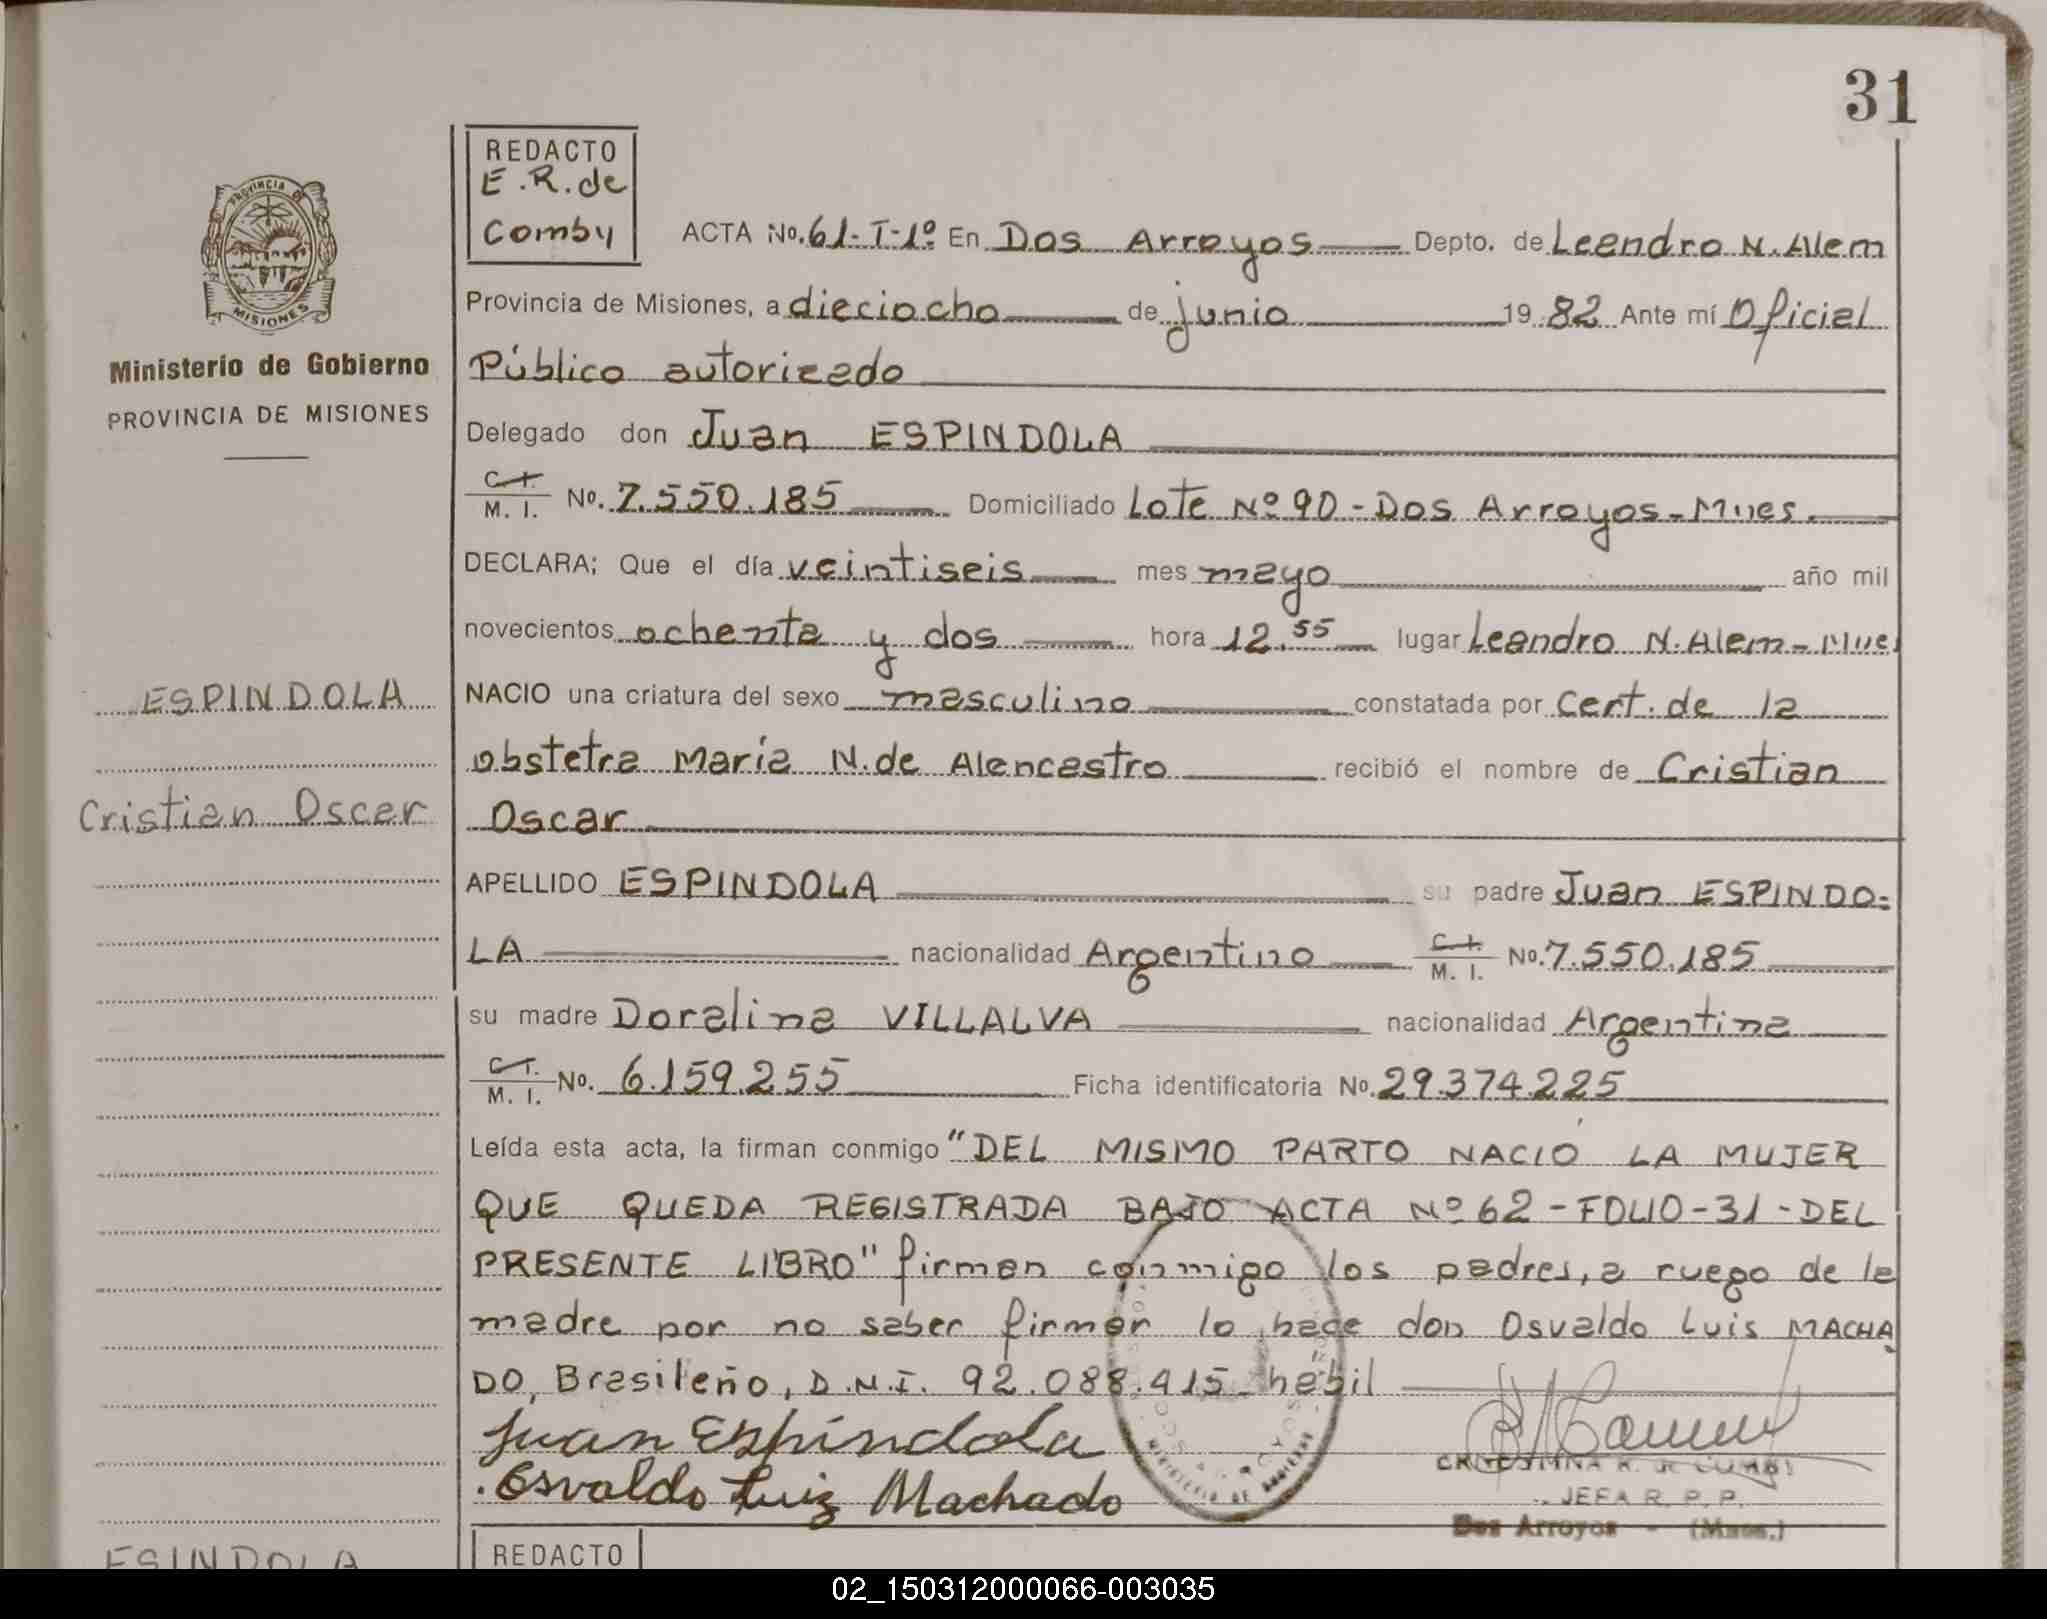 31
REDACTO
E.R. de
Comby
PROVINCIA DE
MISIONES
Ministerio de Gobierno
PROVINCIA DE MISIONES
ACTA No. 61-I-1º En Dos Arroyos Depto. de Leandro N. Alem
Provincia de Misiones, a dieciocho de junio 19 82 Ante mí Oficial
Público autorizado
Delegado don Juan ESPINDOLA
C. I. M. I. No. 7.550.185 Domiciliado Lote Nº 90 - Dos Arroyos - Mnes.
DECLARA; Que el día veintiseis mes mayo año mil
novecientos ochenta y dos hora 12.55 lugar Leandro N. Alem - Mnes
ESPINDOLA
NACIO una criatura del sexo masculino constatada por cert. de la
obstetra María N. de Alencastro recibió el nombre de Cristian
Cristian Oscar
Oscar
APELLIDO ESPINDOLA su padre Juan ESPINDO-
LA nacionalidad Argentino C. I. M. I. No. 7.550.185
su madre Doralina VILLALVA nacionalidad Argentina
C. I. M. I. No. 6.159.255 Ficha identificatoria No. 29.374.225
Leída esta acta, la firman conmigo "DEL MISMO PARTO NACIÓ LA MUJER
QUE QUEDA REGISTRADA BAJO ACTA Nº 62 - FOLIO - 31 - DEL
PRESENTE LIBRO" firman conmigo los padres, a ruego de la
madre por no saber firmar lo hace don Osvaldo Luis MACHA
DO, Brasileño, D.N.I. 92.088.915 hábil
Juan Espíndola
Osvaldo Luiz Machado
JEFA R. P. P.
Dos Arroyos - (Mnes.)
ESINDOLA
REDACTO
02_150312000066-003035